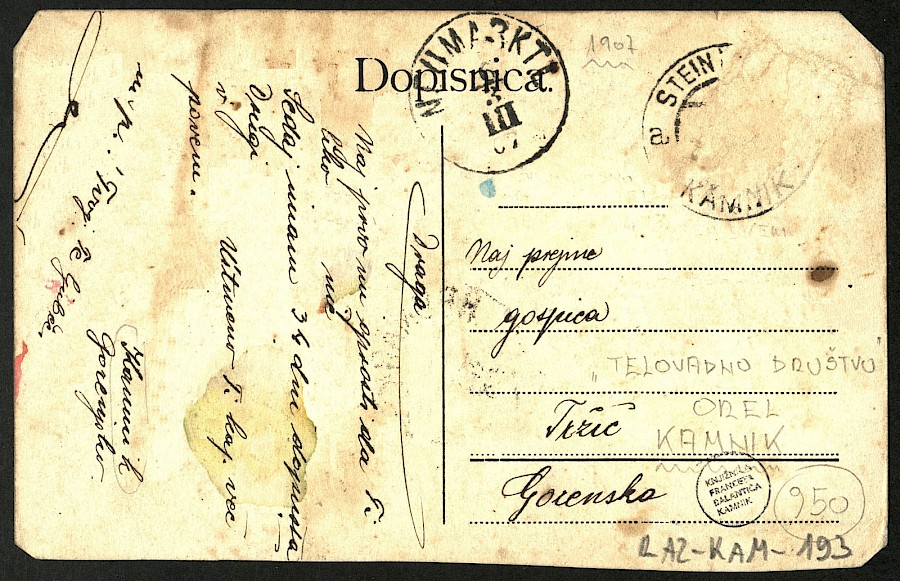 Dopisnica.
NEUMARKTL
III
07
1907
STEIN
a
KAMNIK
Draga
Naj prvo mi oprosti da Ti
tiko nič
Sedaj imam 34 dni dopusta
Druga
v Ustmeno T. kaj več
povem.
Kamnik
Gorenjsko
Naj prejme
gospica
Tržič
Gorenska
"TELOVADNO DRUŠTVO"
OREL
KAMNIK
KNJIŽNICA
FRANCETA
BALANTIČA
KAMNIK
950
RAZ-KAM-193